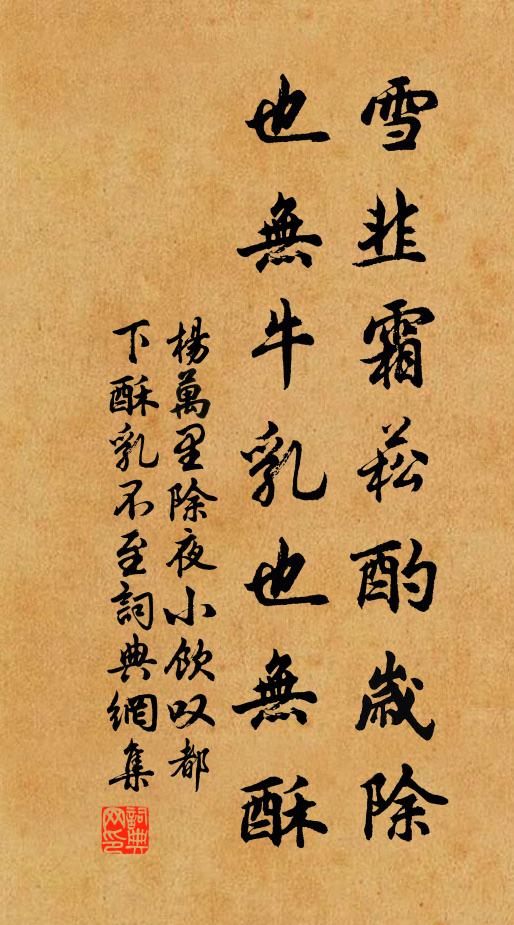 雪韭霜菘酌歲除
也無牛乳也無酥
楊萬里除夜小飲叹都
下酥乳不至詞典網集
詞典
网印